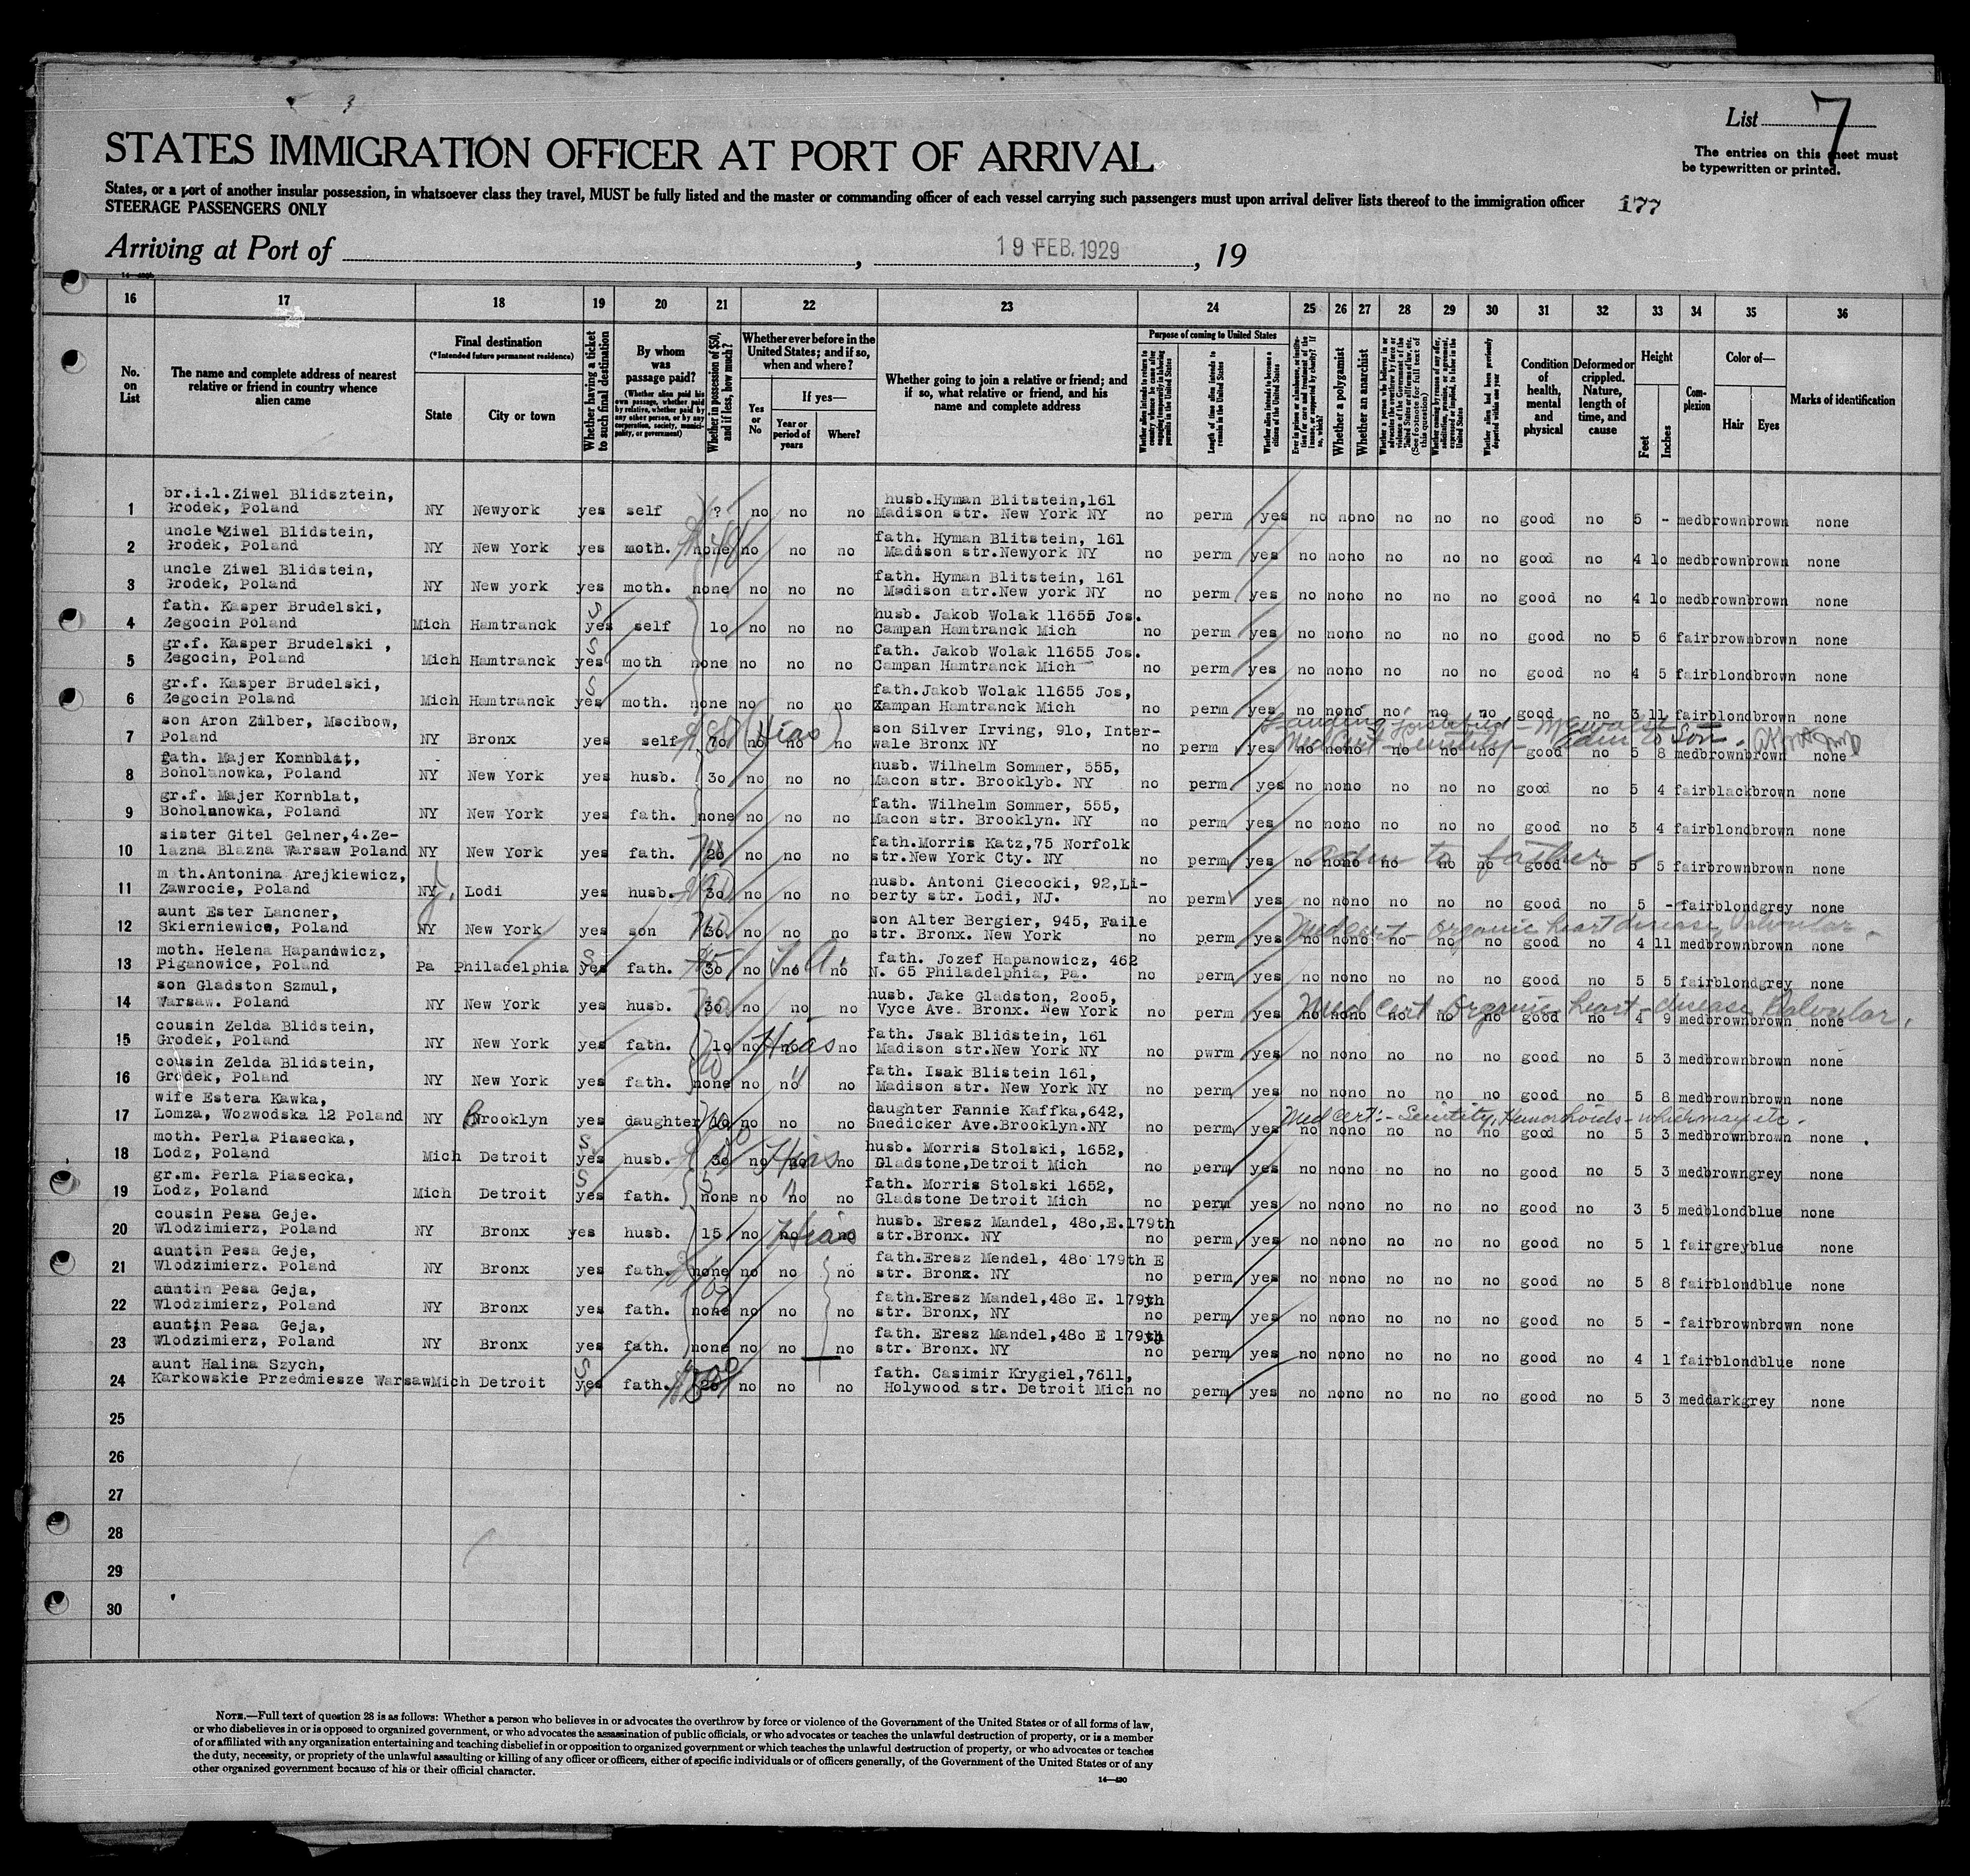 3
List 7
STATES IMMIGRATION OFFICER AT PORT OF ARRIVAL
The entries on this sheet must
be typewritten or printed.
States, or a port of another insular possession, in whatsoever class they travel, MUST be fully listed and the master or commanding officer of each vessel carrying such passengers must upon arrival deliver lists thereof to the immigration officer
STEERAGE PASSENGERS ONLY
177
Arriving at Port of , 19 FEB. 1929 , 19
16 17 18 19 20 21 22 23 24 25 26 27 28 29 30 31 32 33 34 35 36
No. on List
The name and complete address of nearest relative or friend in country whence alien came
Final destination
(*Intended future permanent residence)
State
City or town
Whether having a ticket to such final destination
By whom was passage paid?
(Whether alien paid his own passage, whether paid by relative, whether paid by any other person, or by any corporation, society, municipality, or government)
Whether in possession of $50, and if less, how much?
Whether ever before in the United States; and if so, when and where?
Yes or No
If yes—
Year or period of years
Where?
Whether going to join a relative or friend; and if so, what relative or friend, and his name and complete address
Purpose of coming to United States
Length of time alien intends to remain in the United States
Whether alien intends to become a citizen of the United States
Whether a polygamist
Whether an anarchist
Whether alien had been previously deported within one year
Condition of health, mental and physical
Deformed or crippled. Nature, length of time, and cause
Height
Feet
Inches
Complexion
Color of—
Hair
Eyes
Marks of identification
1 br.i.l.Ziwel Blidsztein, Grodek, Poland NY Newyork yes self ? no no no husb.Hyman Blitstein,161 Madison str. New York NY no perm yes no no no no no no good no 5 - med brown brown none
2 uncle Ziwel Blidstein, Grodek, Poland NY New York yes moth. none no no no fath. Hyman Blitstein, 161 Madison str.Newyork NY no perm yes no no no no no no good no 4 1o med brown brown none
3 uncle Ziwel Blidstein, Grodek, Poland NY New york yes moth. none no no no fath. Hyman Blitstein, 161 Madison atr.New york NY no perm yes no no no no no no good no 4 1o med brown brown none
4 fath. Kasper Brudelski, Zegocin Poland Mich Hamtranck S yes self 1o no no no husb. Jakob Wolak 11655 Jos. Campan Hamtranck Mich no perm yes no no no no no no good no 5 6 fair brown brown none
5 gr.f. Kasper Brudelski , Zegocin, Poland Mich Hamtranck S yes moth none no no no fath. Jakob Wolak 11655 Jos. Campan Hamtranck Mich no perm yes no no no no no no good no 4 5 fair blond brown none
6 gr.f. Kasper Brudelski, Zegocin Poland Mich Hamtranck S yes moth. none no no no fath.Jakob Wolak 11655 Jos, Kampan Hamtranck Mich no perm yes no no no no no no good no 3 11 fair blond brown none
7 son Aron Zilber, Mscibow, Poland NY Bronx yes self 7o (Hias) no no no son Silver Irving, 91o, Inter- wale Bronx NY no perm yes no no no no no no good no 5 8 med brown brown none
Med cert - senility - Adm to son.
8 fath. Majer Kornblat, Boholanowka, Poland NY New York yes husb. 3o no no no husb. Wilhelm Sommer, 555, Macon str. Brooklyb. NY no perm yes no no no no no no good no 5 4 fair black brown none
9 gr.f. Majer Kornblat, Boholanowka, Poland NY New York yes fath. none no no no fath. Wilhelm Sommer, 555, Macon str. Brooklyn. NY no perm yes no no no no no no good no 3 4 fair blond brown none
10 sister Gitel Gelner,4.Ze- lazna Blazna Warsaw Poland NY New York yes fath. 2o no no no fath.Morris Katz,75 Norfolk str.New York Cty. NY no perm yes no no no no no no good no 5 5 fair brown brown none
adm to father
11 m th.Antonina Arejkiewicz, Zawrocie, Poland NY J. Lodi yes husb. 3o no no no husb. Antoni Ciecocki, 92,Li- berty str. Lodi, NJ. no perm yes no no no no no no good no 5 - fair blond grey none
12 aunt Ester Lancner, Skierniewice, Poland NY New York yes son 3o no no no son Alter Bergier, 945, Faile str. Bronx. New York no perm yes no no no no no no good no 4 11 med brown brown none
Med cert - organic heart disease, Valvular.
13 moth. Helena Hapanowicz, Piganowice, Poland Pa Philadelphia S yes fath. 3o no no no fath. Jozef Hapanowicz, 462 N. 65 Philadelphia, Pa. no perm yes no no no no no no good no 5 5 fair blond grey none
14 son Gladston Szmul, Warsaw. Poland NY New York yes husb. 3o no no no husb. Jake Gladston, 2oo5, Vyce Ave. Bronx. New York no perm yes no no no no no no good no 4 9 med brown brown none
Med cert organic heart - disease Valvular.
15 cousin Zelda Blidstein, Grodek, Poland NY New York yes fath. 1o Hias no no no fath. Jsak Blidstein, 161 Madison str.New York NY no pwrm yes no no no no no no good no 5 3 med brown brown none
16 cousin Zelda Blidstein, Grodek, Poland NY New York yes fath. none " no no no fath. Isak Blistein 161, Madison str. New York NY no perm yes no no no no no no good no 5 8 med brown brown none
17 wife Estera Kawka, Lomza, Wozwodska 12 Poland NY Brooklyn yes daughter 1o no no no daughter Fannie Kaffka,642, Snedicker Ave.Brooklyn.NY no perm yes no no no no no no good no 5 3 med brown brown none
Med cert:- Senility, Hemorrhoids - which may etc.
18 moth. Perla Piasecka, Lodz, Poland Mich Detroit S yes husb. 3o Hias no no no husb. Morris Stolski, 1652, Gladstone,Detroit Mich no perm yes no no no no no no good no 5 3 med brown grey none
19 gr.m. Perla Piasecka, Lodz, Poland Mich Detroit S yes fath. none " no no no fath. Morris Stolski 1652, Gladstone Detroit Mich no perm yes no no no no no no good no 3 5 med blond blue none
20 cousin Pesa Geje. Wlodzimierz, Poland NY Bronx yes husb. 15 Hias no no no husb. Eresz Mandel, 48o,E.179th str.Bronx. NY no perm yes no no no no no no good no 5 1 fair grey blue none
21 auntin Pesa Geje, Wlodzimierz. Poland NY Bronx yes fath. none no no no fath.Eresz Mendel, 48o 179th E str. Bronx. NY no perm yes no no no no no no good no 5 8 fair blond blue none
22 auntin Pesa Geja, Wlodzimierz, Poland NY Bronx yes fath. none no no no fath.Eresz Mandel,48o E. 179th str. Bronx, NY no perm yes no no no no no no good no 5 - fair brown brown none
23 auntin Pesa Geja, Wlodzimierz, Poland NY Bronx yes fath. none no no no fath. Eresz Mandel,48o E 179th str. Bronx. NY no perm yes no no no no no no good no 4 1 fair blond blue none
24 aunt Halina Szych, Karkowskie Przedmiesze Warsaw Mich Detroit S yes fath. 2o no no no fath. Casimir Krygiel,7611, Holywood str. Detroit Mich no perm yes no no no no no no good no 5 3 med dark grey none
25
26
27
28
29
30
NOTE.—Full text of question 28 is as follows: Whether a person who believes in or advocates the overthrow by force or violence of the Government of the United States or of all forms of law,
or who disbelieves in or is opposed to organized government, or who advocates the assassination of public officials, or who advocates or teaches the unlawful destruction of property, or is a member
of or affiliated with any organization entertaining and teaching disbelief in or opposition to organized government or which teaches the unlawful destruction of property, or who advocates or teaches
the duty, necessity, or propriety of the unlawful assaulting or killing of any officer or officers, either of specific individuals or of officers generally, of the Government of the United States or of any
other organized government because of his or their official character.
14—430